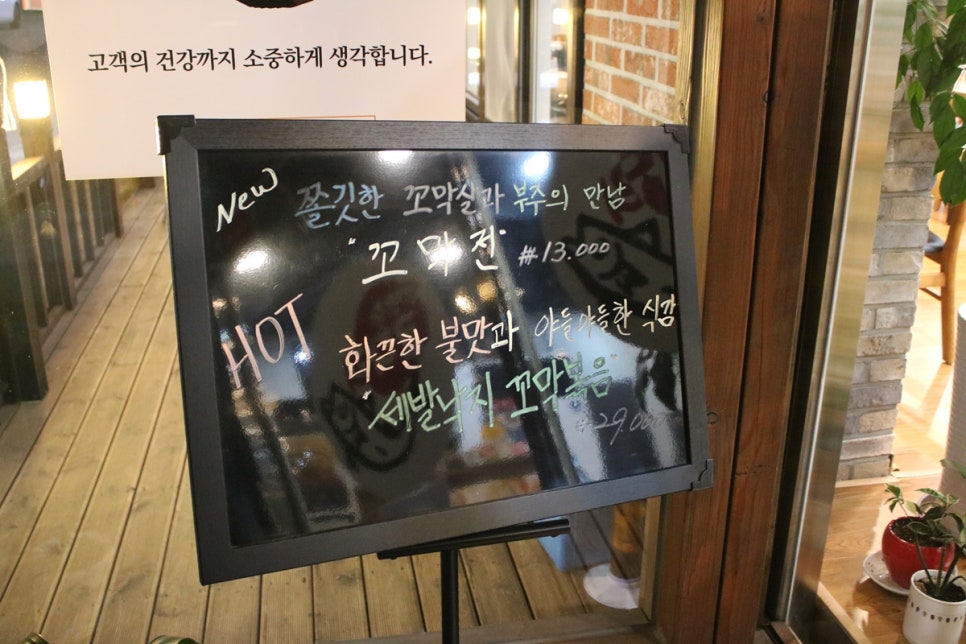 고객의 건강까지 소중하게 생각합니다.
New 쫄깃한 꼬막살과 부추의 만남
"꼬막전" ₩13.000
HOT 화끈한 불맛과 야들야들한 식감
"세발낙지 꼬막볶음"
₩29.000